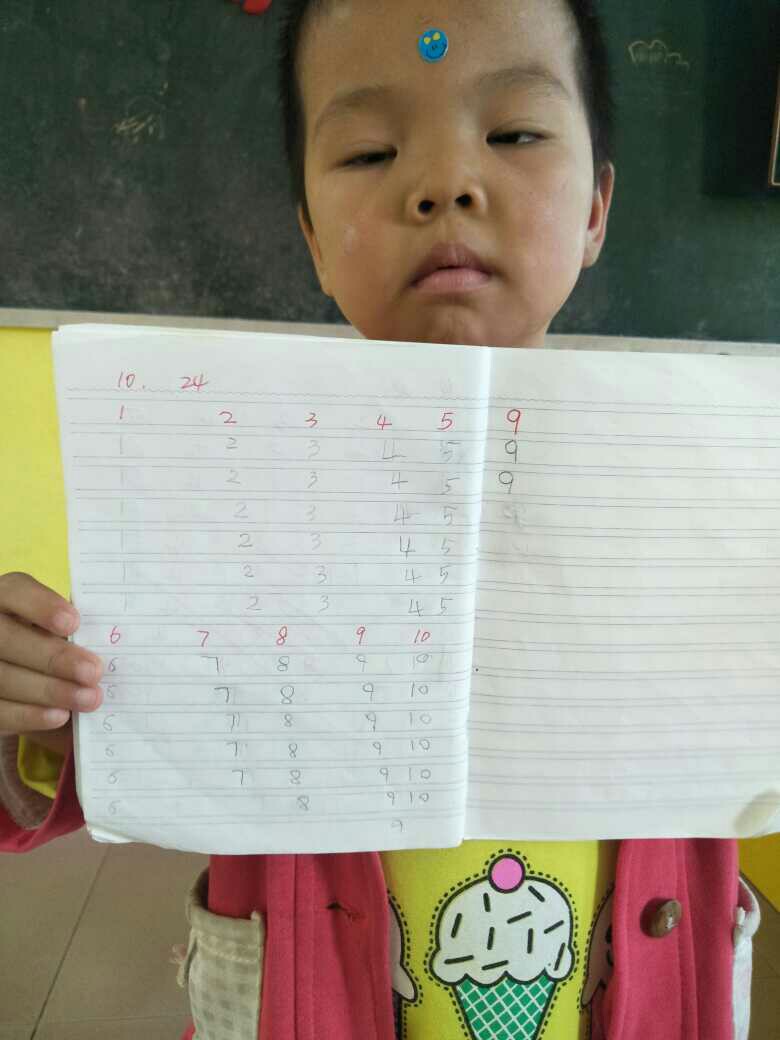 10. 24
1 2 3 4 5 9
1 2 3 4 5 9
1 2 3 4 5 9
1 2 3 4 5
1 2 3 4 5
1 2 3 4 5
1 2 3 4 5
6 7 8 9 10
6 7 8 9 10
6 7 8 9 10
6 7 8 9 10
6 7 8 9 10
6 7 8 9 10
6 8 9 10
9